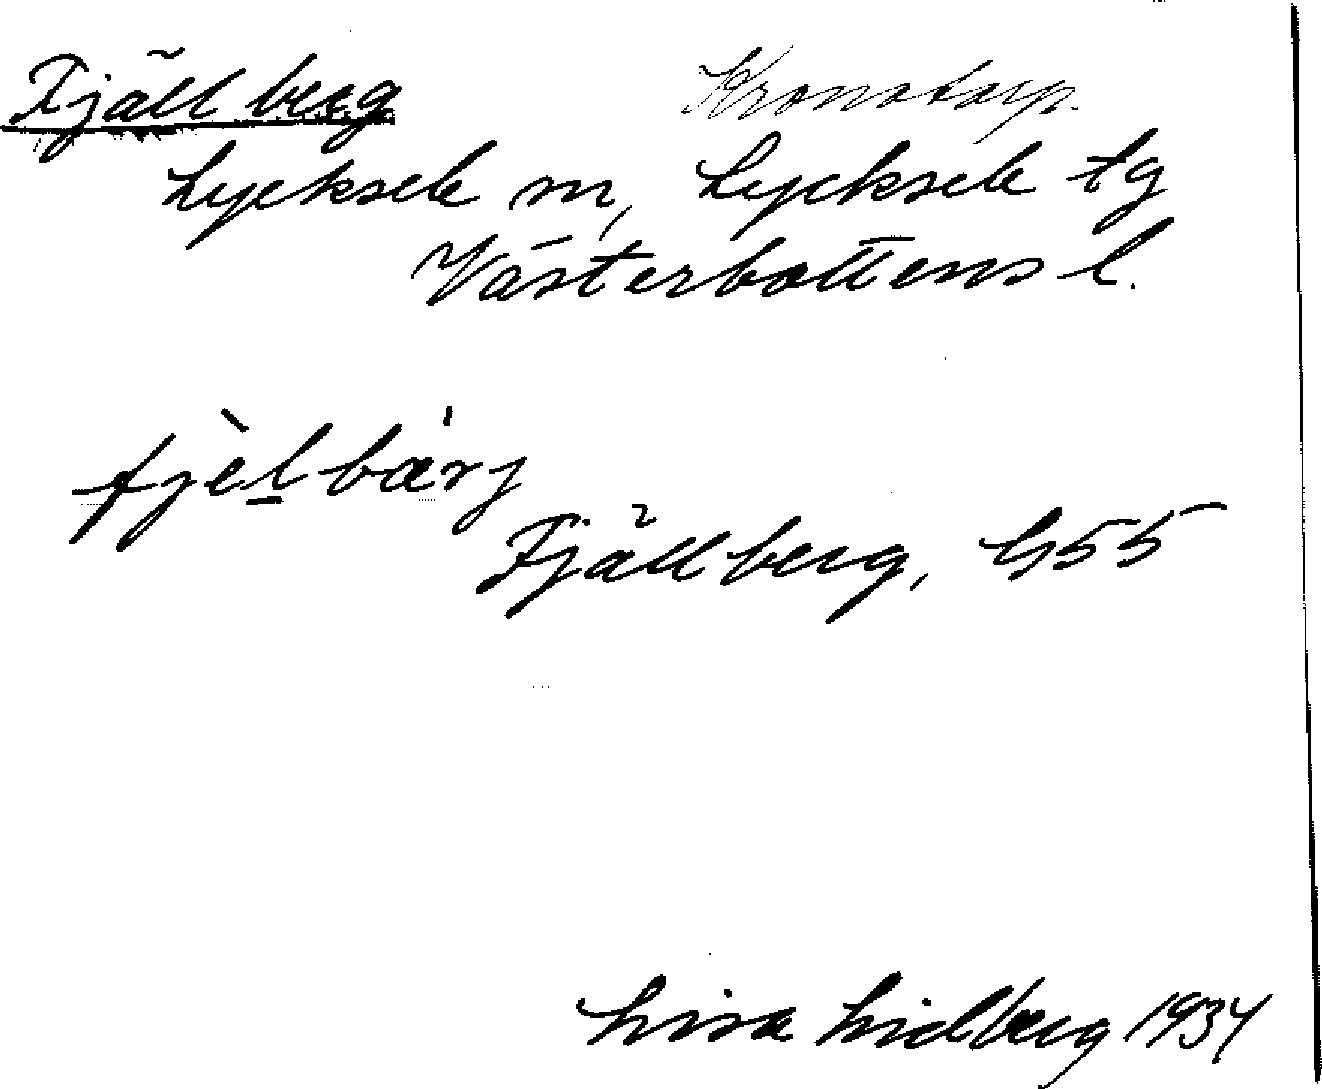 Fjällberg Kronotorp.
Lycksele sn, Lycksele tg
Västerbottens l.
fjèḻbæ̀rj
Fjällberg, G55
Lisa Lidberg 1934